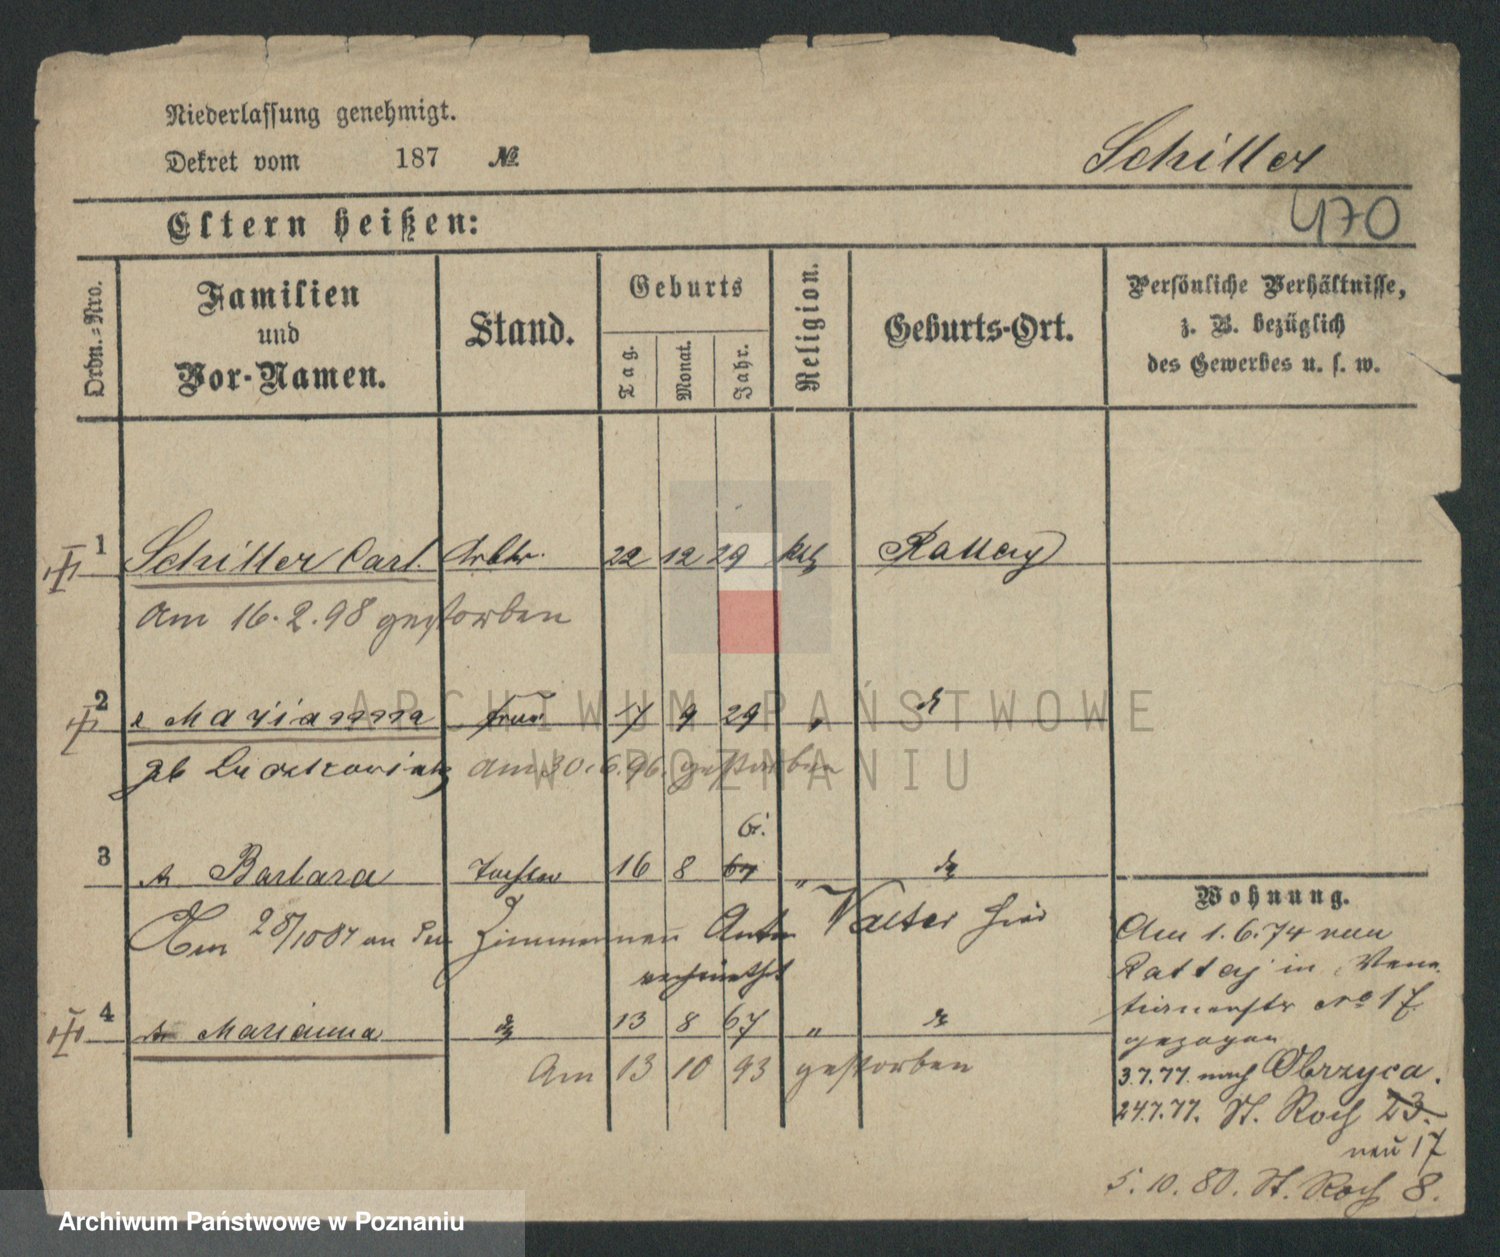 Niederlassung genehmigt.
Dekret vom 187 №
Schiller
470
Eltern heißen:
Ordn.-Nro.
Familien
und
Vor-Namen.
Stand.
Geburts
Tag.
Monat.
Jahr.
Religion.
Geburts-Ort.
Persönliche Verhältnisse,
z. B. bezüglich
des Gewerbes u. s. w.
1 Schiller Carl Arbtr. 22 12 29 kth Rattay
Am 16.2.98 gestorben
2 Marianna Frau 17 9 29 "
geb am 30.6.96. gestorben
61.
3 Barbara Tochter 16 8 67 "
Am 28/10 87 an den Zimmermann Anton Walter hier
verheirathet
4 Marianna 13 8 67 "
Am 13 10 93 gestorben
Wohnung.
Am 1.6.74 von
Rattaj in
No 17
gezogen
3.7.77. nach Obrzyca.
24.7.77. St. Roch 23.
neu 17
5.10.80. St. Roch 8.
ARCHIWUM PAŃSTWOWE
W POZNANIU
Archiwum Państwowe w Poznaniu